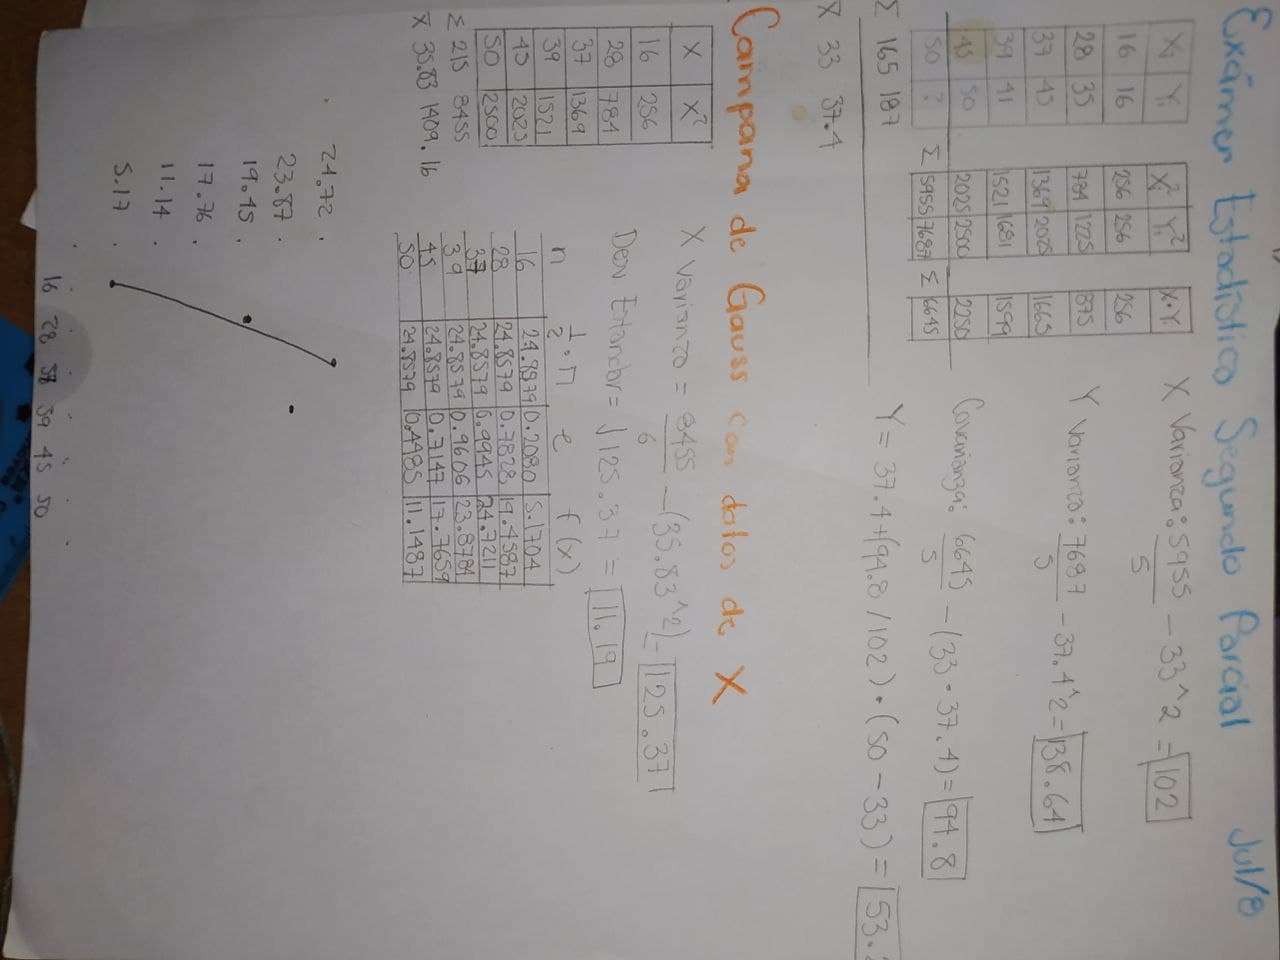 Exámen Estadística Segundo Parcial Jul/8
Xi Yi
16 16
28 35
37 45
39 41
45 50
50 ?
Σ 165 187
X̄ 33 37.4
Xi² Yi²
256 256
784 1225
1369 2025
1521 1681
2025 2500
Σ 5955 7687
X·Yi
256
975
1665
1599
2250
Σ 6645
X Varianza: 5955/5 - 33^2 = 102
Y Varianza: 7687/5 - 37.4^2 = 138.64
Covarianza: 6645/5 - (33·37.4) = 94.8
Y = 37.4+(94.8/102)·(50-33) = 53.
Campana de Gauss con datos de X
X X²
16 256
28 784
37 1369
39 1521
45 2025
50 2500
Σ 215 8455
X̄ 35.83 1409.16
X Varianza = 8455/6 - (35.83^2) = 125.37
Desv Estandar = √125.37 = 11.19
n 1/2·n e f(x)
16 24.8579 0.2080 5.1704
28 24.8579 0.7828 19.4587
37 24.8579 0.9945 24.7211
39 24.8579 0.9606 23.8784
45 24.8579 0.7147 17.7659
50 24.8579 0.4485 11.1487
24.72
23.87
19.45
17.76
11.14
5.17
16 28 38 39 45 50